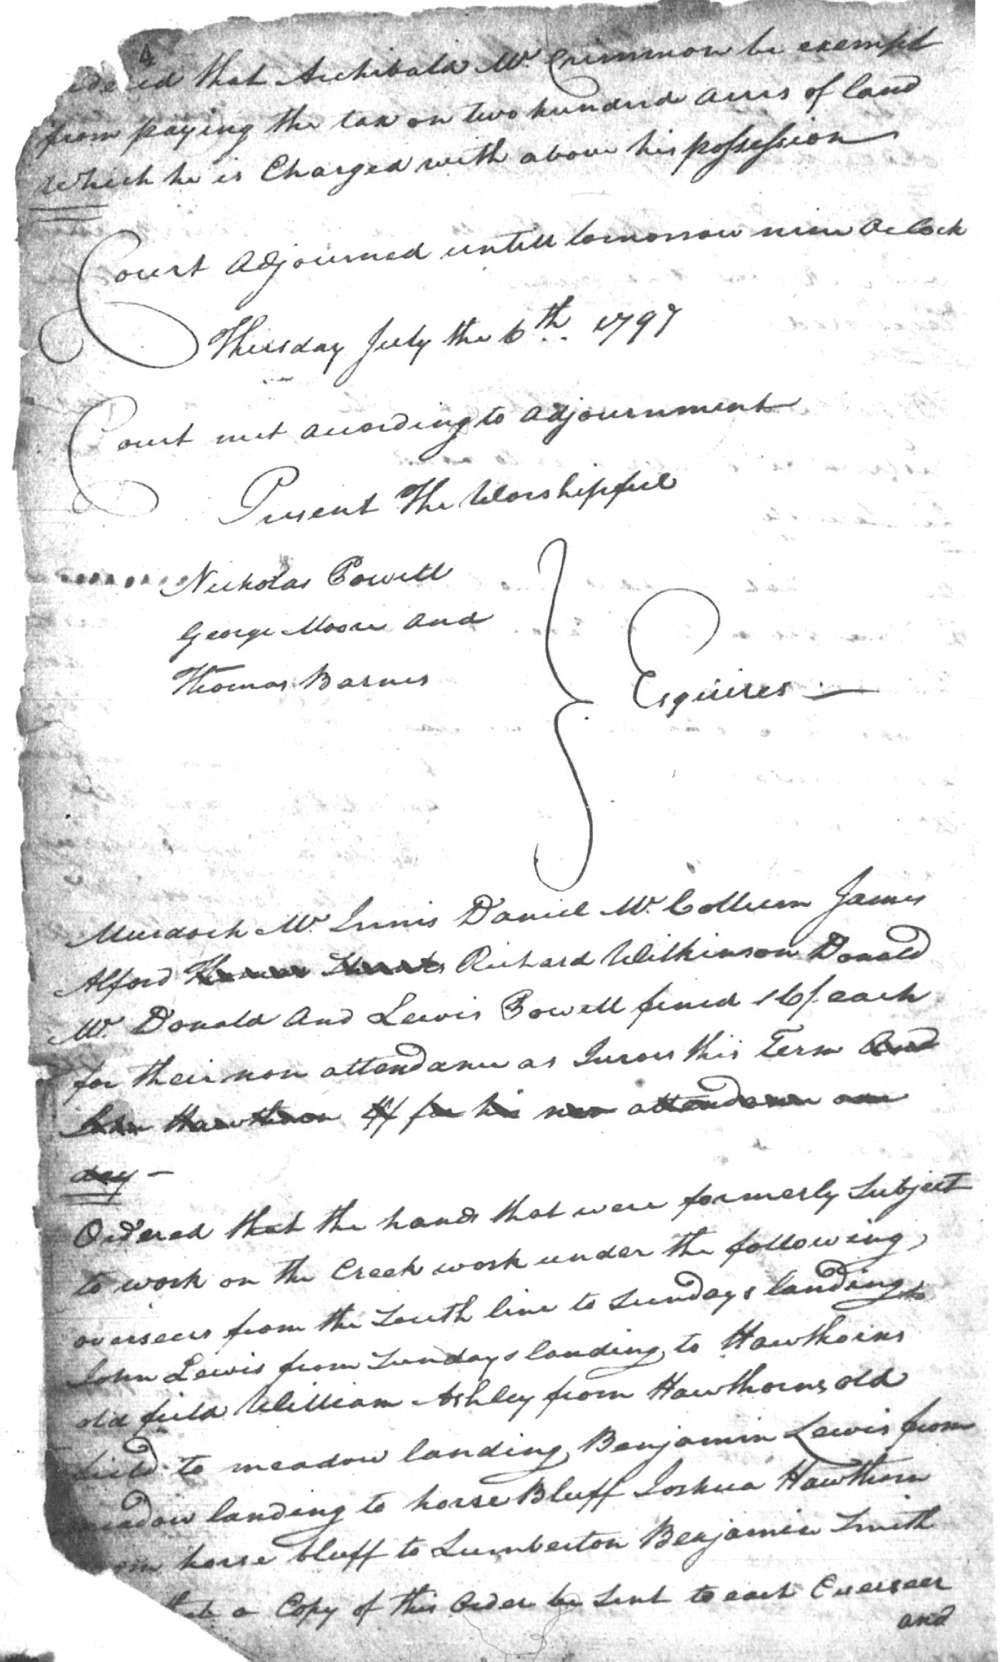 4
dered that Archibald Mc. Crimmon be exempt
from paying the tax on two hundred acres of land
which he is Charged with above his possession
Court Adjourned untill tomorrow nine oClock
Thirsday July the 6th. 1797
Court met according to adjournment
Present The Worshipful
Nicholas Powell
George Moore and
Thomas Barnes
Esquires
Murdoch Mc. Innis Daniel Mc. Collum James
Alford Richard Wilkinson Donald
Mc. Donald and Lewis Powell fined 16/ each
for their non attendance as Jurors this Term and
John Hawthorn for his non attendance one
day -
Ordered that the hands that were formerly Subject
to work on the Creek work under the following
overseers from the South line to Sundays landing
John Lewis from Sundays landing to Hawthorns
old field William Ashley from Hawthorns old
field to meadow landing Benjamin Lewis from
meadow landing to horse Bluff Joshua Hawthorn
from horse bluff to Lumberton Benjamin Smith
that a Copy of this Order be Sent to each Overseer
and